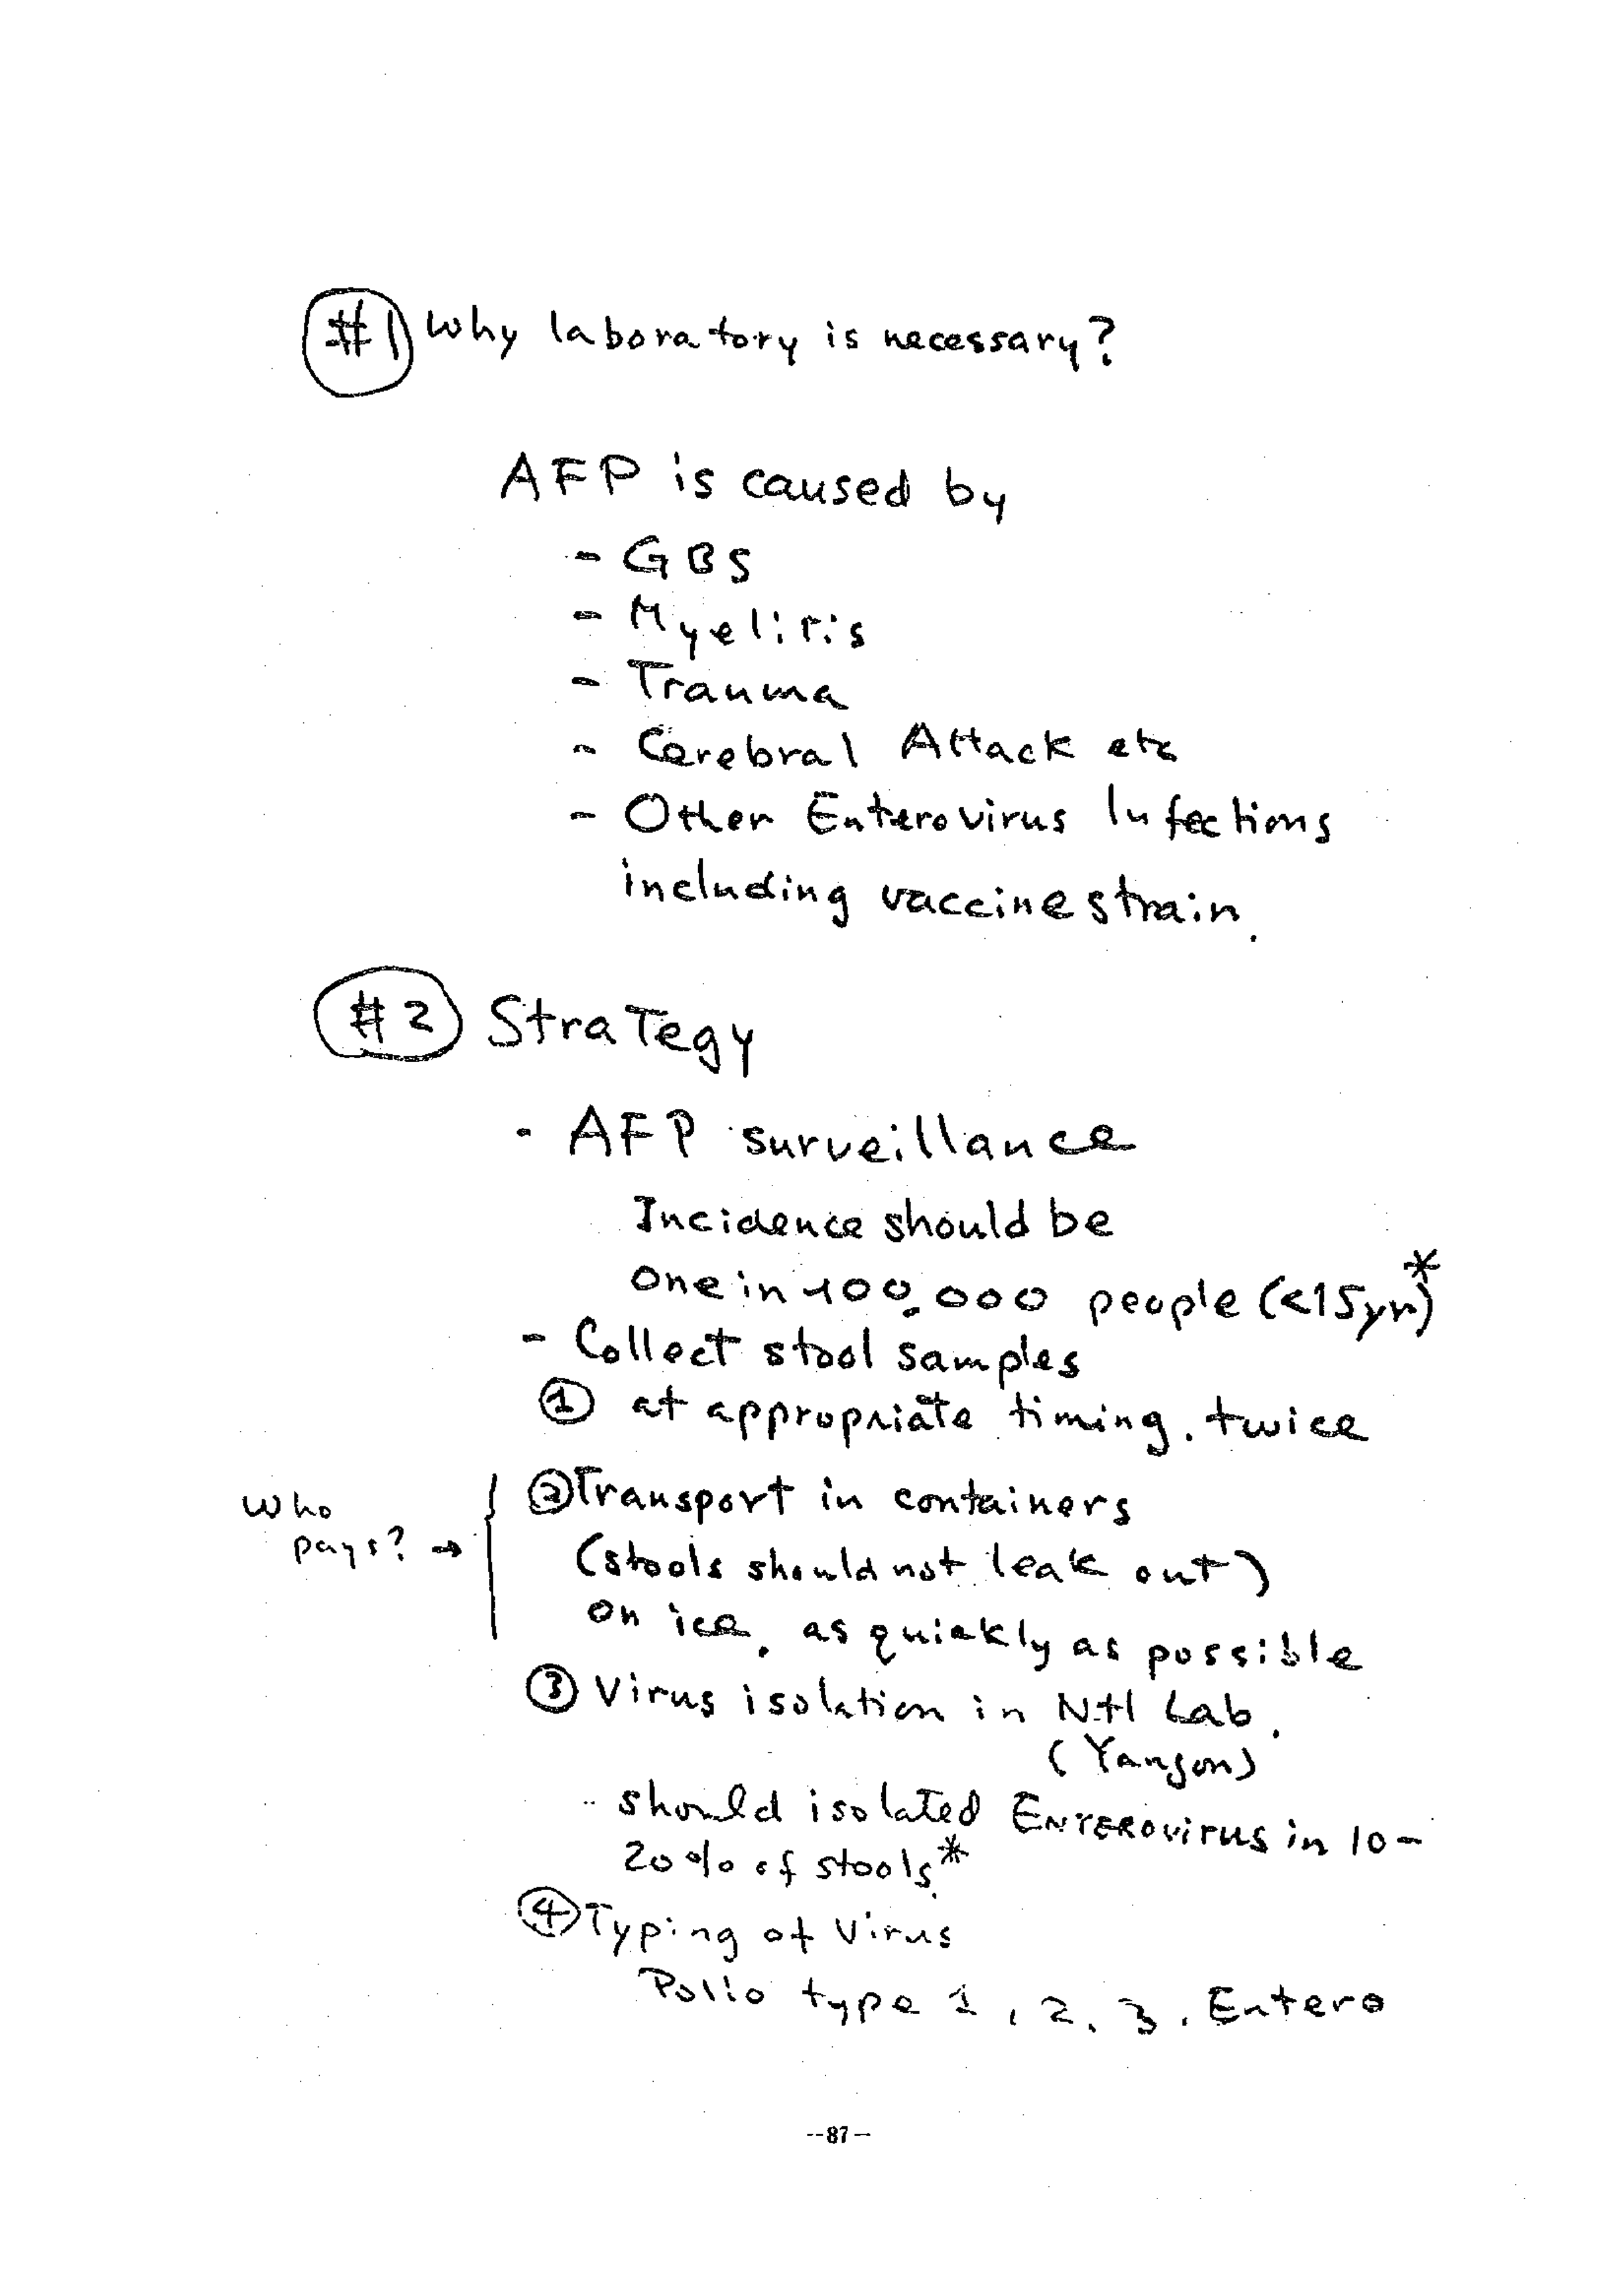 #1 Why laboratory is necessary?
AFP is caused by
- GBS
- Myelitis
- Trauma
- Cerebral Attack etc
- Other Enterovirus Infections
including vaccine strain.
#2 Strategy
- AFP surveillance
Incidence should be
one in 100,000 people (<15yr)*
- Collect stool samples
① at appropriate timing. twice
② Transport in containers
Who
pays? →
(stools should not leak out)
on ice, as quickly as possible
③ Virus isolation in Ntl Lab.
(Yangon)
- should isolated Enterovirus in 10-
20% of stools.*
④ Typing of Virus
Polio type 1, 2, 3, Entero
--87--